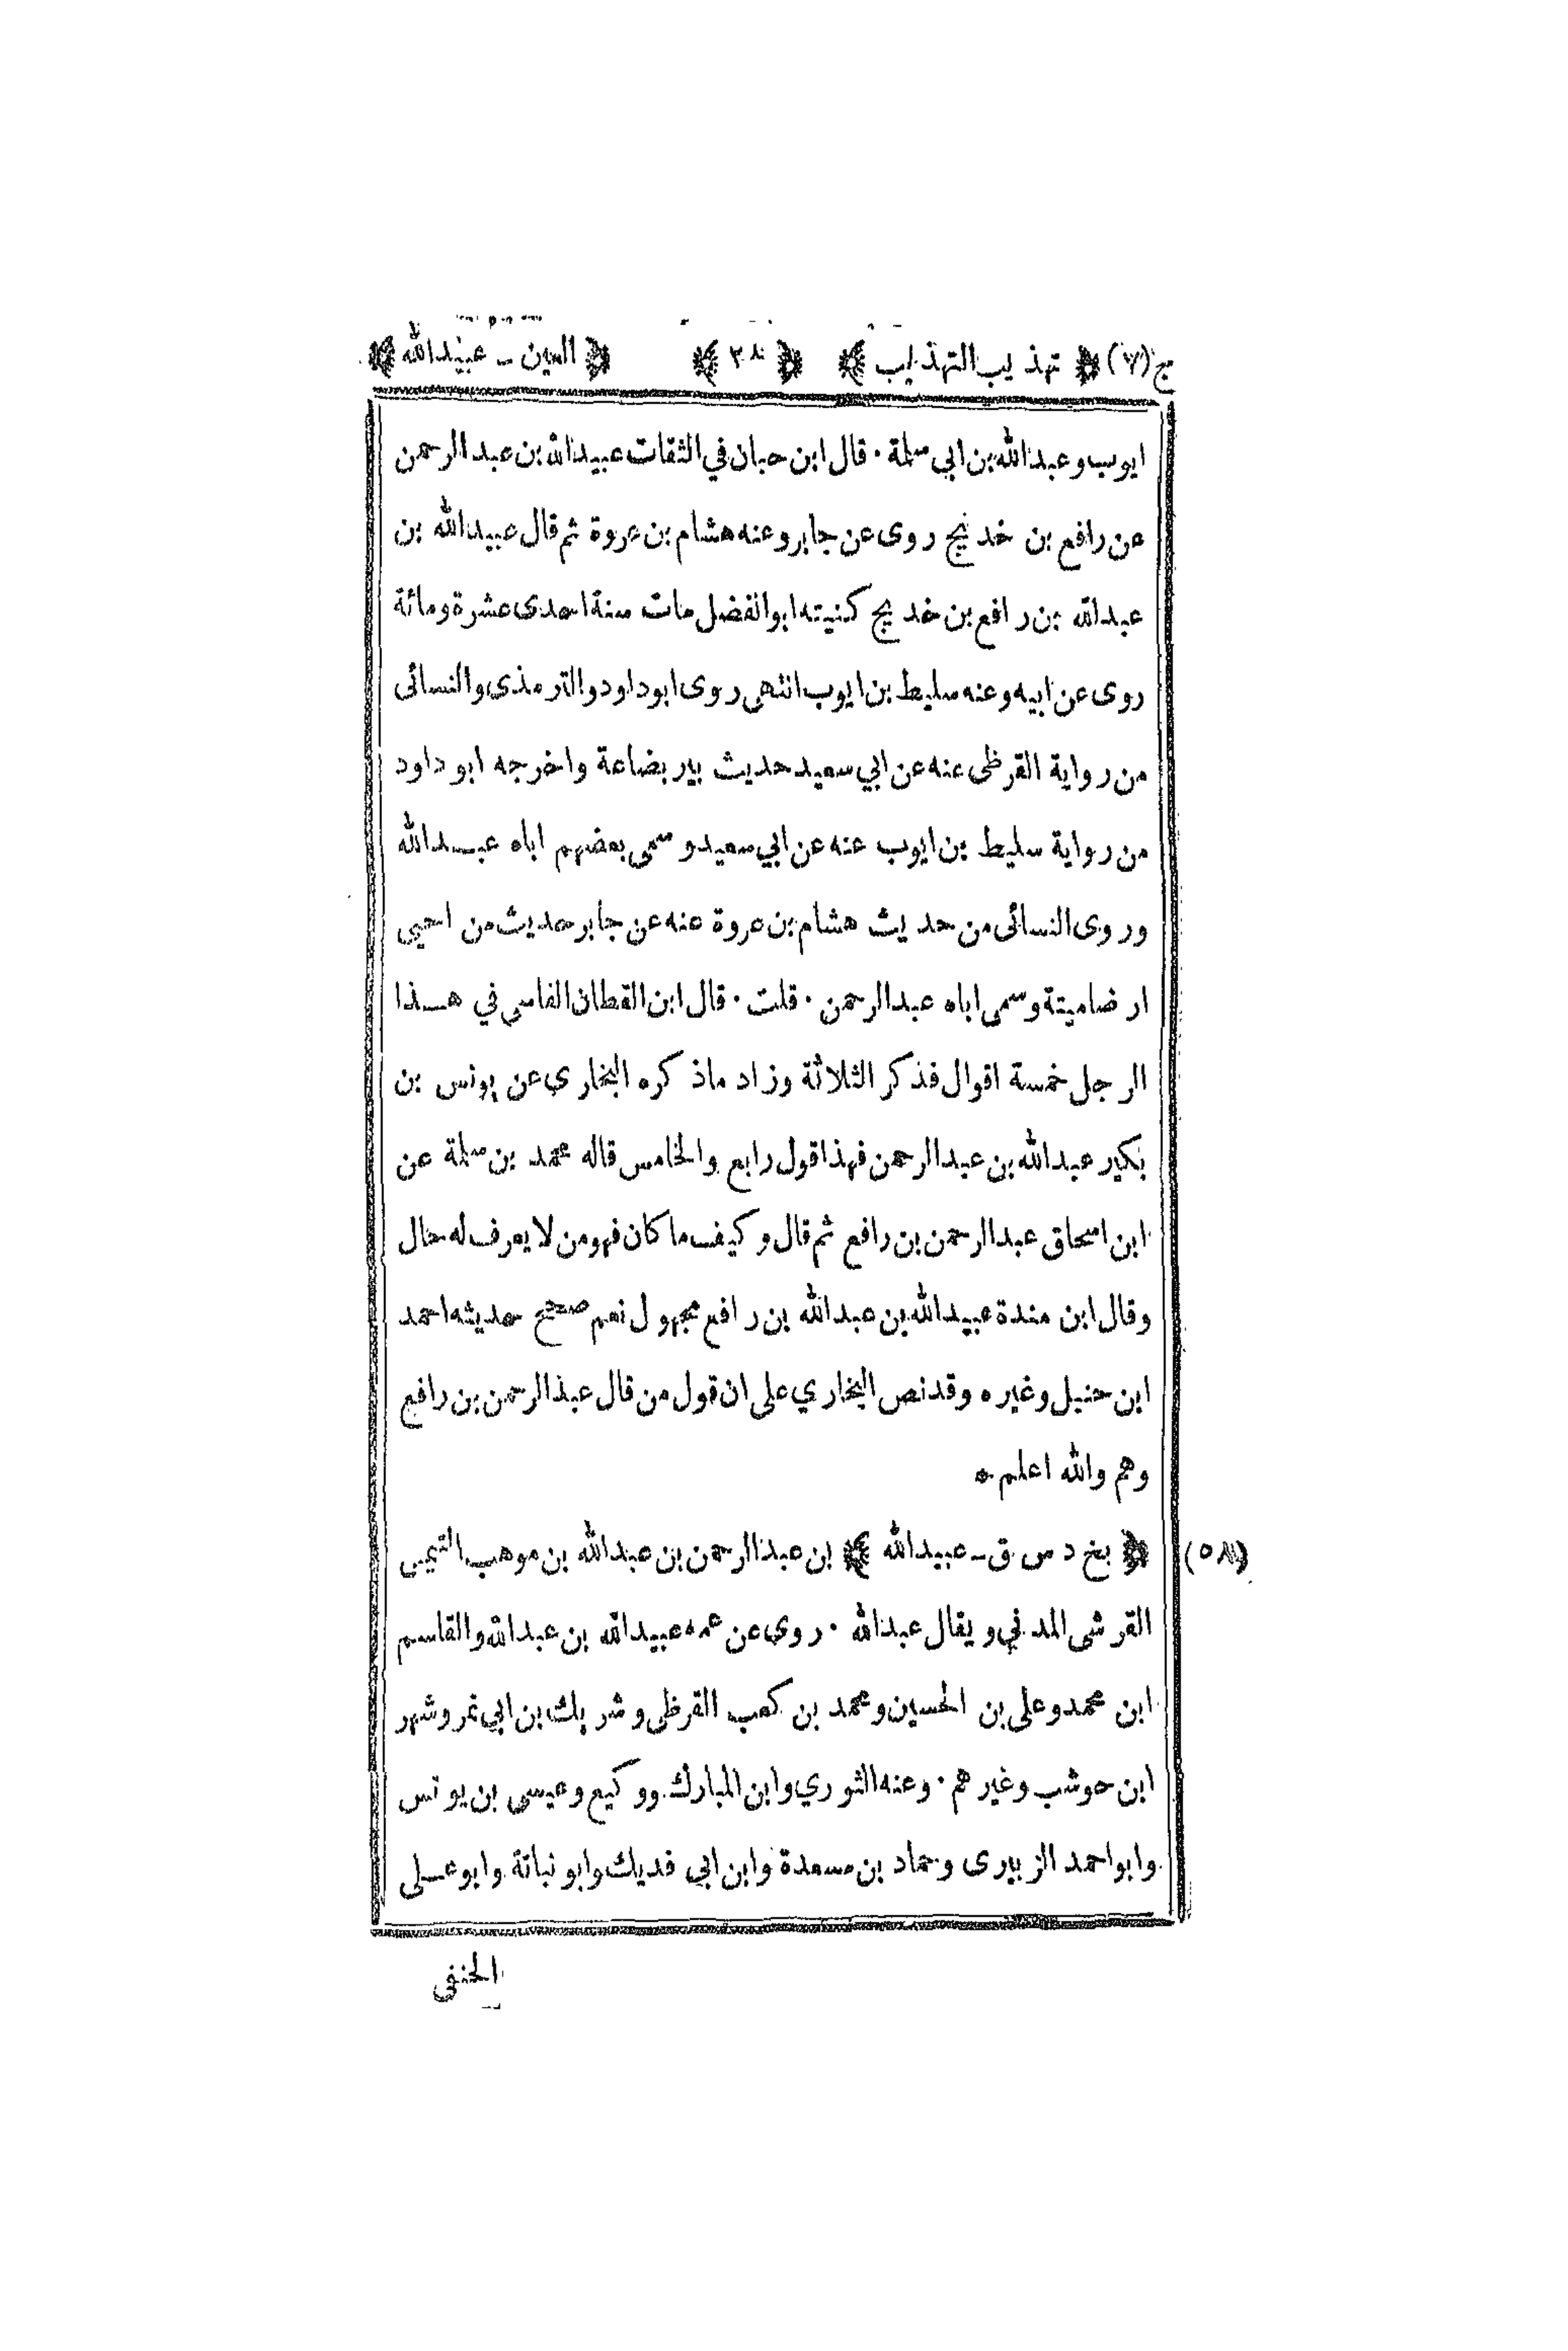 ج(٧) ﴿ تهذيب التهذيب ﴾ ﴿ ٢٨ ﴾ ﴿ العين ـ عبيدالله ﴾
ايوب وعبدالله بن ابي سلمة ٠ قال ابن حبان في الثقات عبيدالله بن عبدالرحمن
عن رافع بن خديج روى عن جابر وعنه هشام بن عروة ثم قال عبيدالله بن
عبدالله بن رافع بن خديج كنيته ابوالفضل مات سنة احدى عشرة ومائة
روى عن ابيه وعنه سليط بن ايوب انتهى روى ابوداود والترمذى والنسائى
من رواية القرظى عنه عن ابي سعيد حديث بير بضاعة واخرجه ابو داود
من رواية سليط بن ايوب عنه عن ابي سعيد وسمى بعضهم اباه عبدالله
وروى النسائى من حديث هشام بن عروة عنه عن جابر حديث من احيى
ارضاميتة وسمى اباه عبدالرحمن ٠ قلت ٠ قال ابن القطان الفاسي في هذا
الرجل خمسة اقوال فذكر الثلاثة وزاد ماذكره البخاري عن يونس بن
بكير عبدالله بن عبدالرحمن فهذا قول رابع والخامس قاله محمد بن سلمة عن
ابن اسحاق عبدالرحمن بن رافع ثم قال وكيف ما كان فهو من لا يعرف له حال
وقال ابن مندة عبيدالله بن عبدالله بن رافع مجهول نعم صحح حديثه احمد
ابن حنبل وغيره وقد نص البخاري على ان قول من قال عبدالرحمن بن رافع
وهم والله اعلم *
﴿ بخ د س ق ـ عبيدالله ﴾ بن عبدالرحمن بن عبدالله بن موهب التيمي (٥٨)
القرشى المدني ويقال عبدالله ٠ روى عن عمه عبيدالله بن عبدالله والقاسم
ابن محمد وعلى بن الحسين ومحمد بن كعب القرظى وشريك بن ابي نمر وشهر
ابن حوشب وغيرهم ٠ وعنه الثوري وابن المبارك ووكيع وعيسى بن يونس
وابواحمد الزبيرى وحماد بن مسعدة وابن ابي فديك وابو نباتة وابوعلى
الحنفى